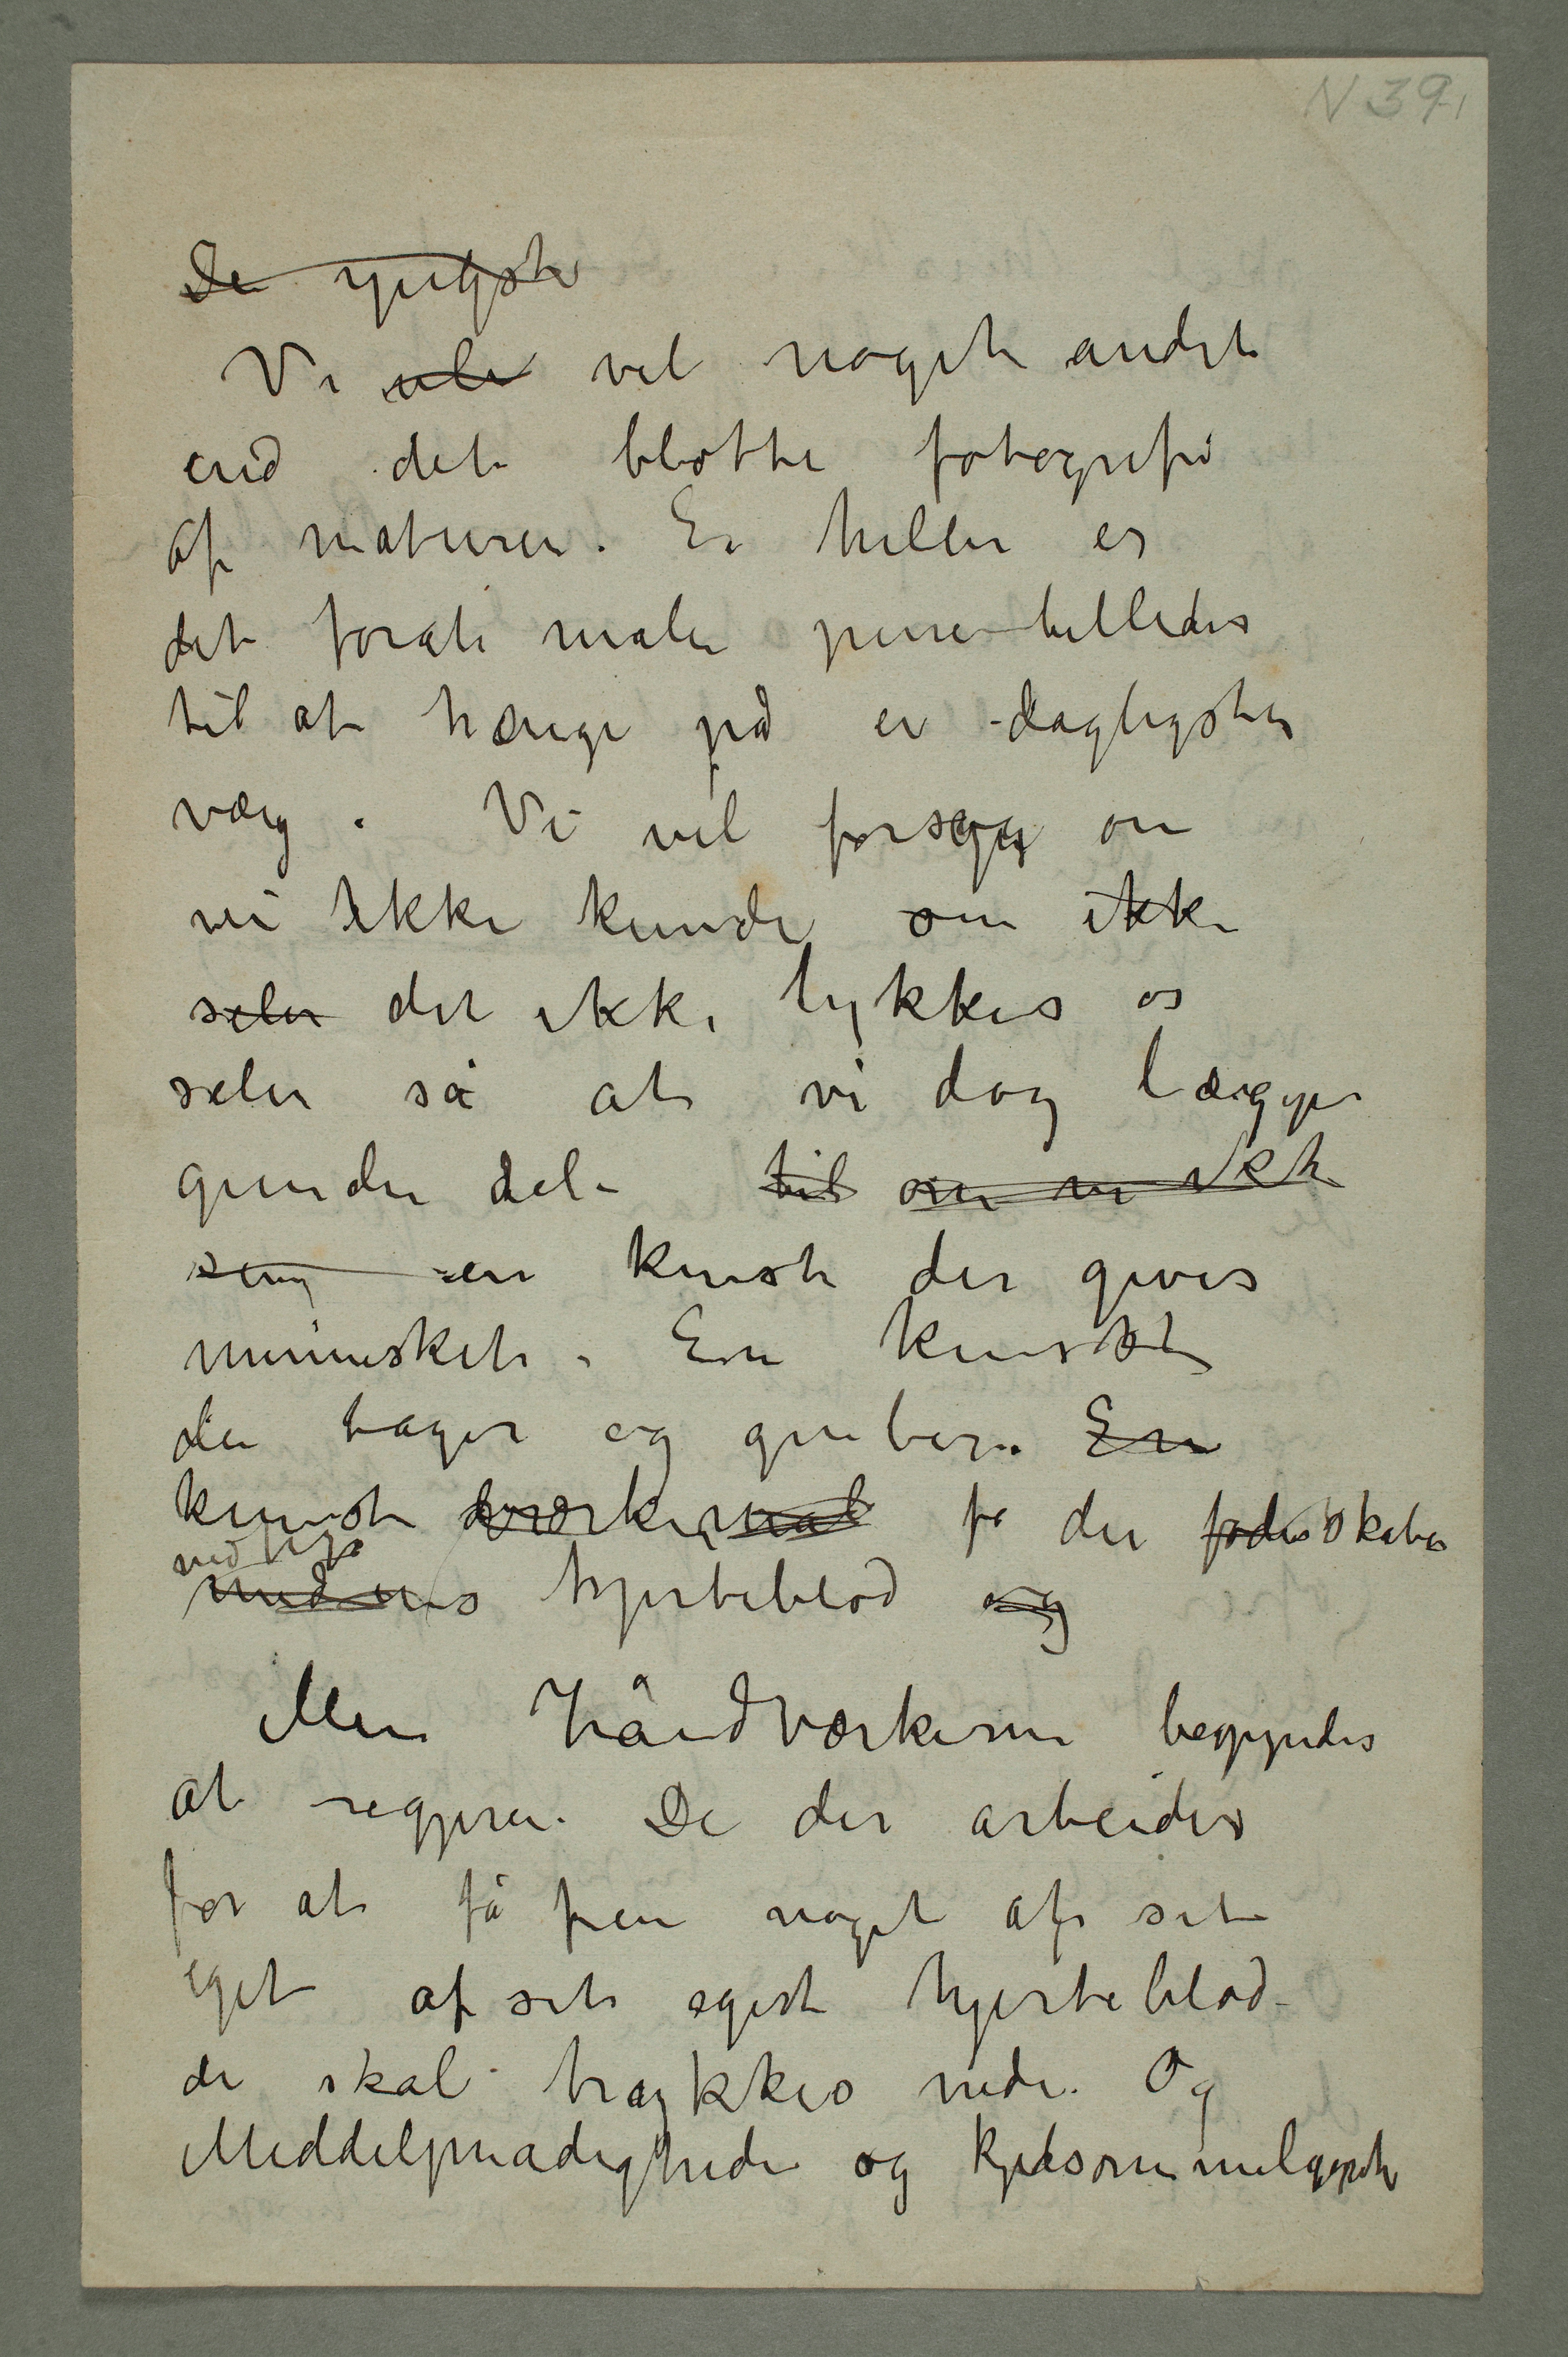 N 39,
De yngste
Vi vil noget andet
end det blotte fotografi
af naturen. Ei heller er
det forat male pene billeder
til at hænge på en dagligstue
væg. Vi vil forsøge om
vi ikke kunde om ikke
selv det ikke lykkes os
selv så at vi dog lægger
grunden del til om vi ikke
en kunst der gives
mennesket. En kunst
der tager og griber. En
kunst der skabes
ved ens hjerteblod og
Men håndværkerne begynder
at regjere. De der arbeider
for at få frem noget af sit
eget af sit eget hjerteblod
de skal trykkes ned. Og
Middelmådigheden og